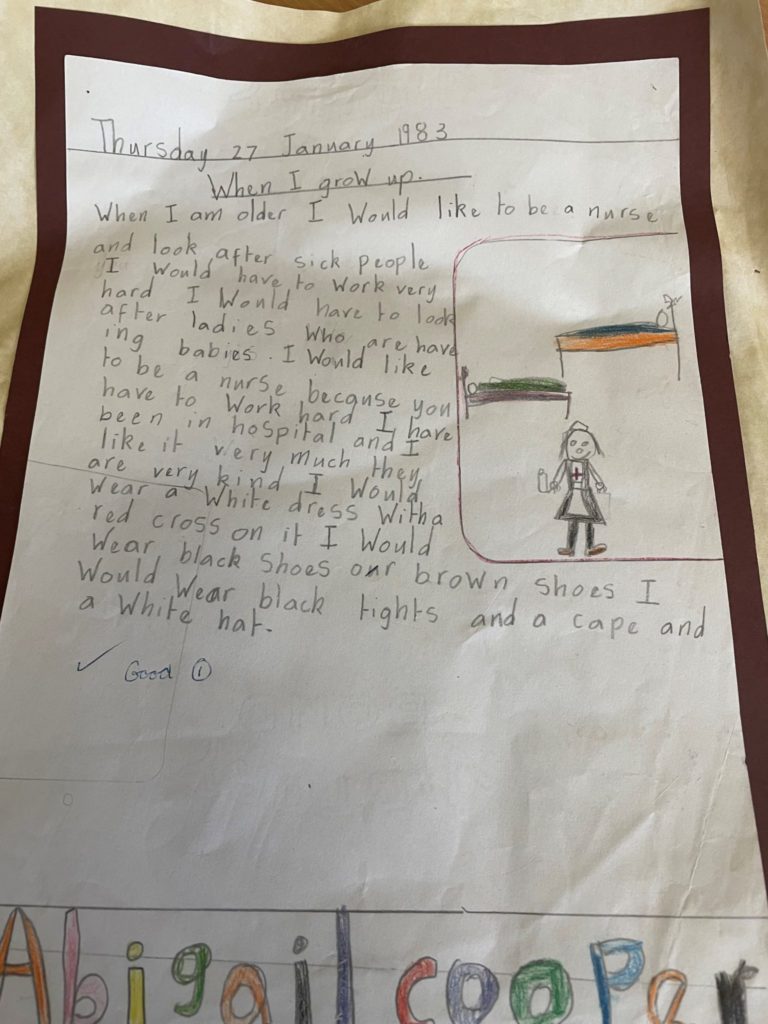 Thursday 27 January 1983
When I grow up.
When I am older I Would like to be a nurse
and look after sick people
I Would have to Work very
hard I Would have to look
after ladies Who are have
ing babies. I Would like
to be a nurse because you
have to Work hard I have
been in hospital and I
like it very much they
are very kind I Would
Wear a White dress With a
red cross on it I Would
Wear black Shoes our brown shoes I
Would Wear black tights and a cape and
a White hat.
✓ Good ①
Abigail cooper